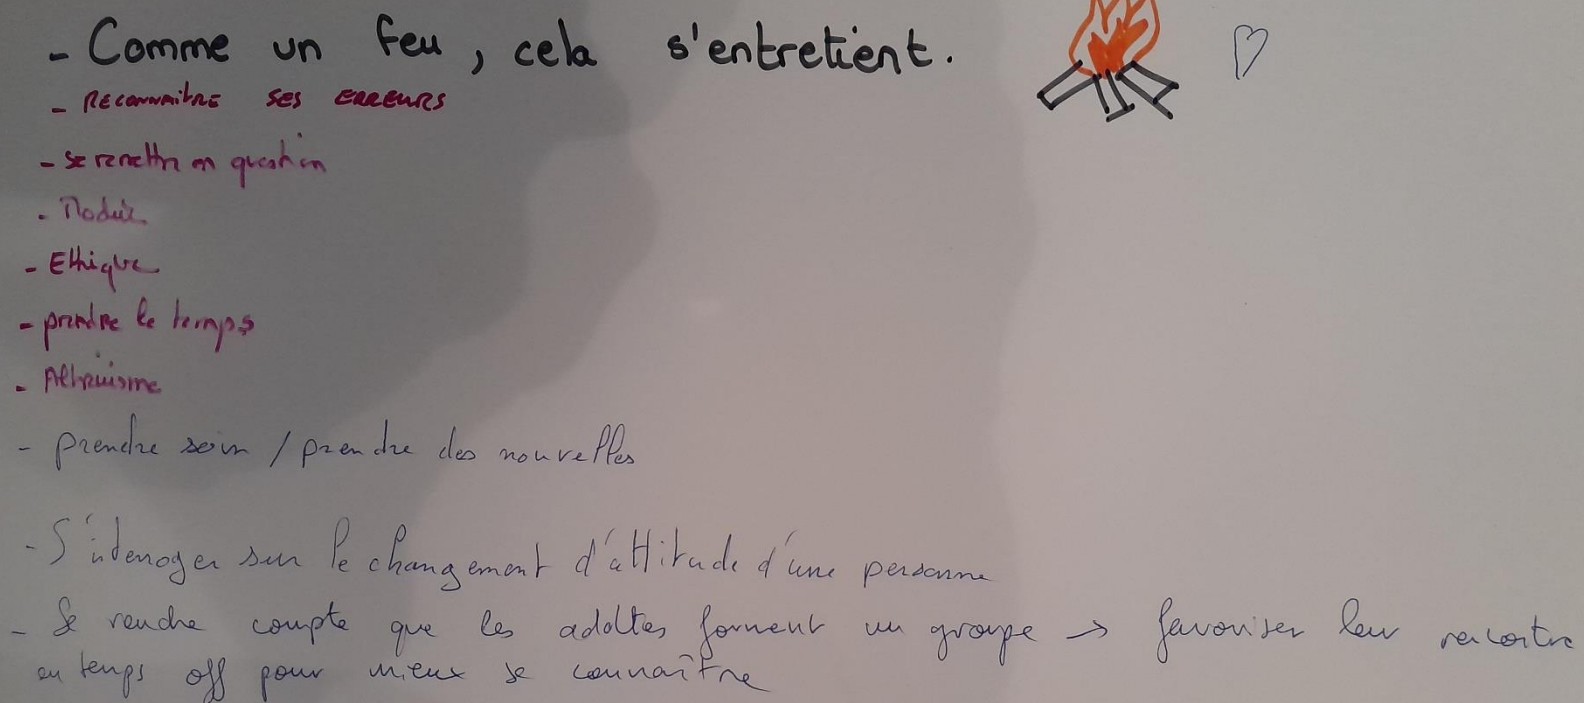 - Comme un feu, cela s'entretient.
- RECONNAITRE SES ERREURS
- se remettre en question
-
- Ethique
- prendre le temps
- Altruisme
- prendre soin / prendre des nouvelles
- S'interroger sur le changement d'attitude d'une personne
- Se rendre compte que les adultes forment un groupe → favoriser leur rencontre
en temps off pour mieux se connaître